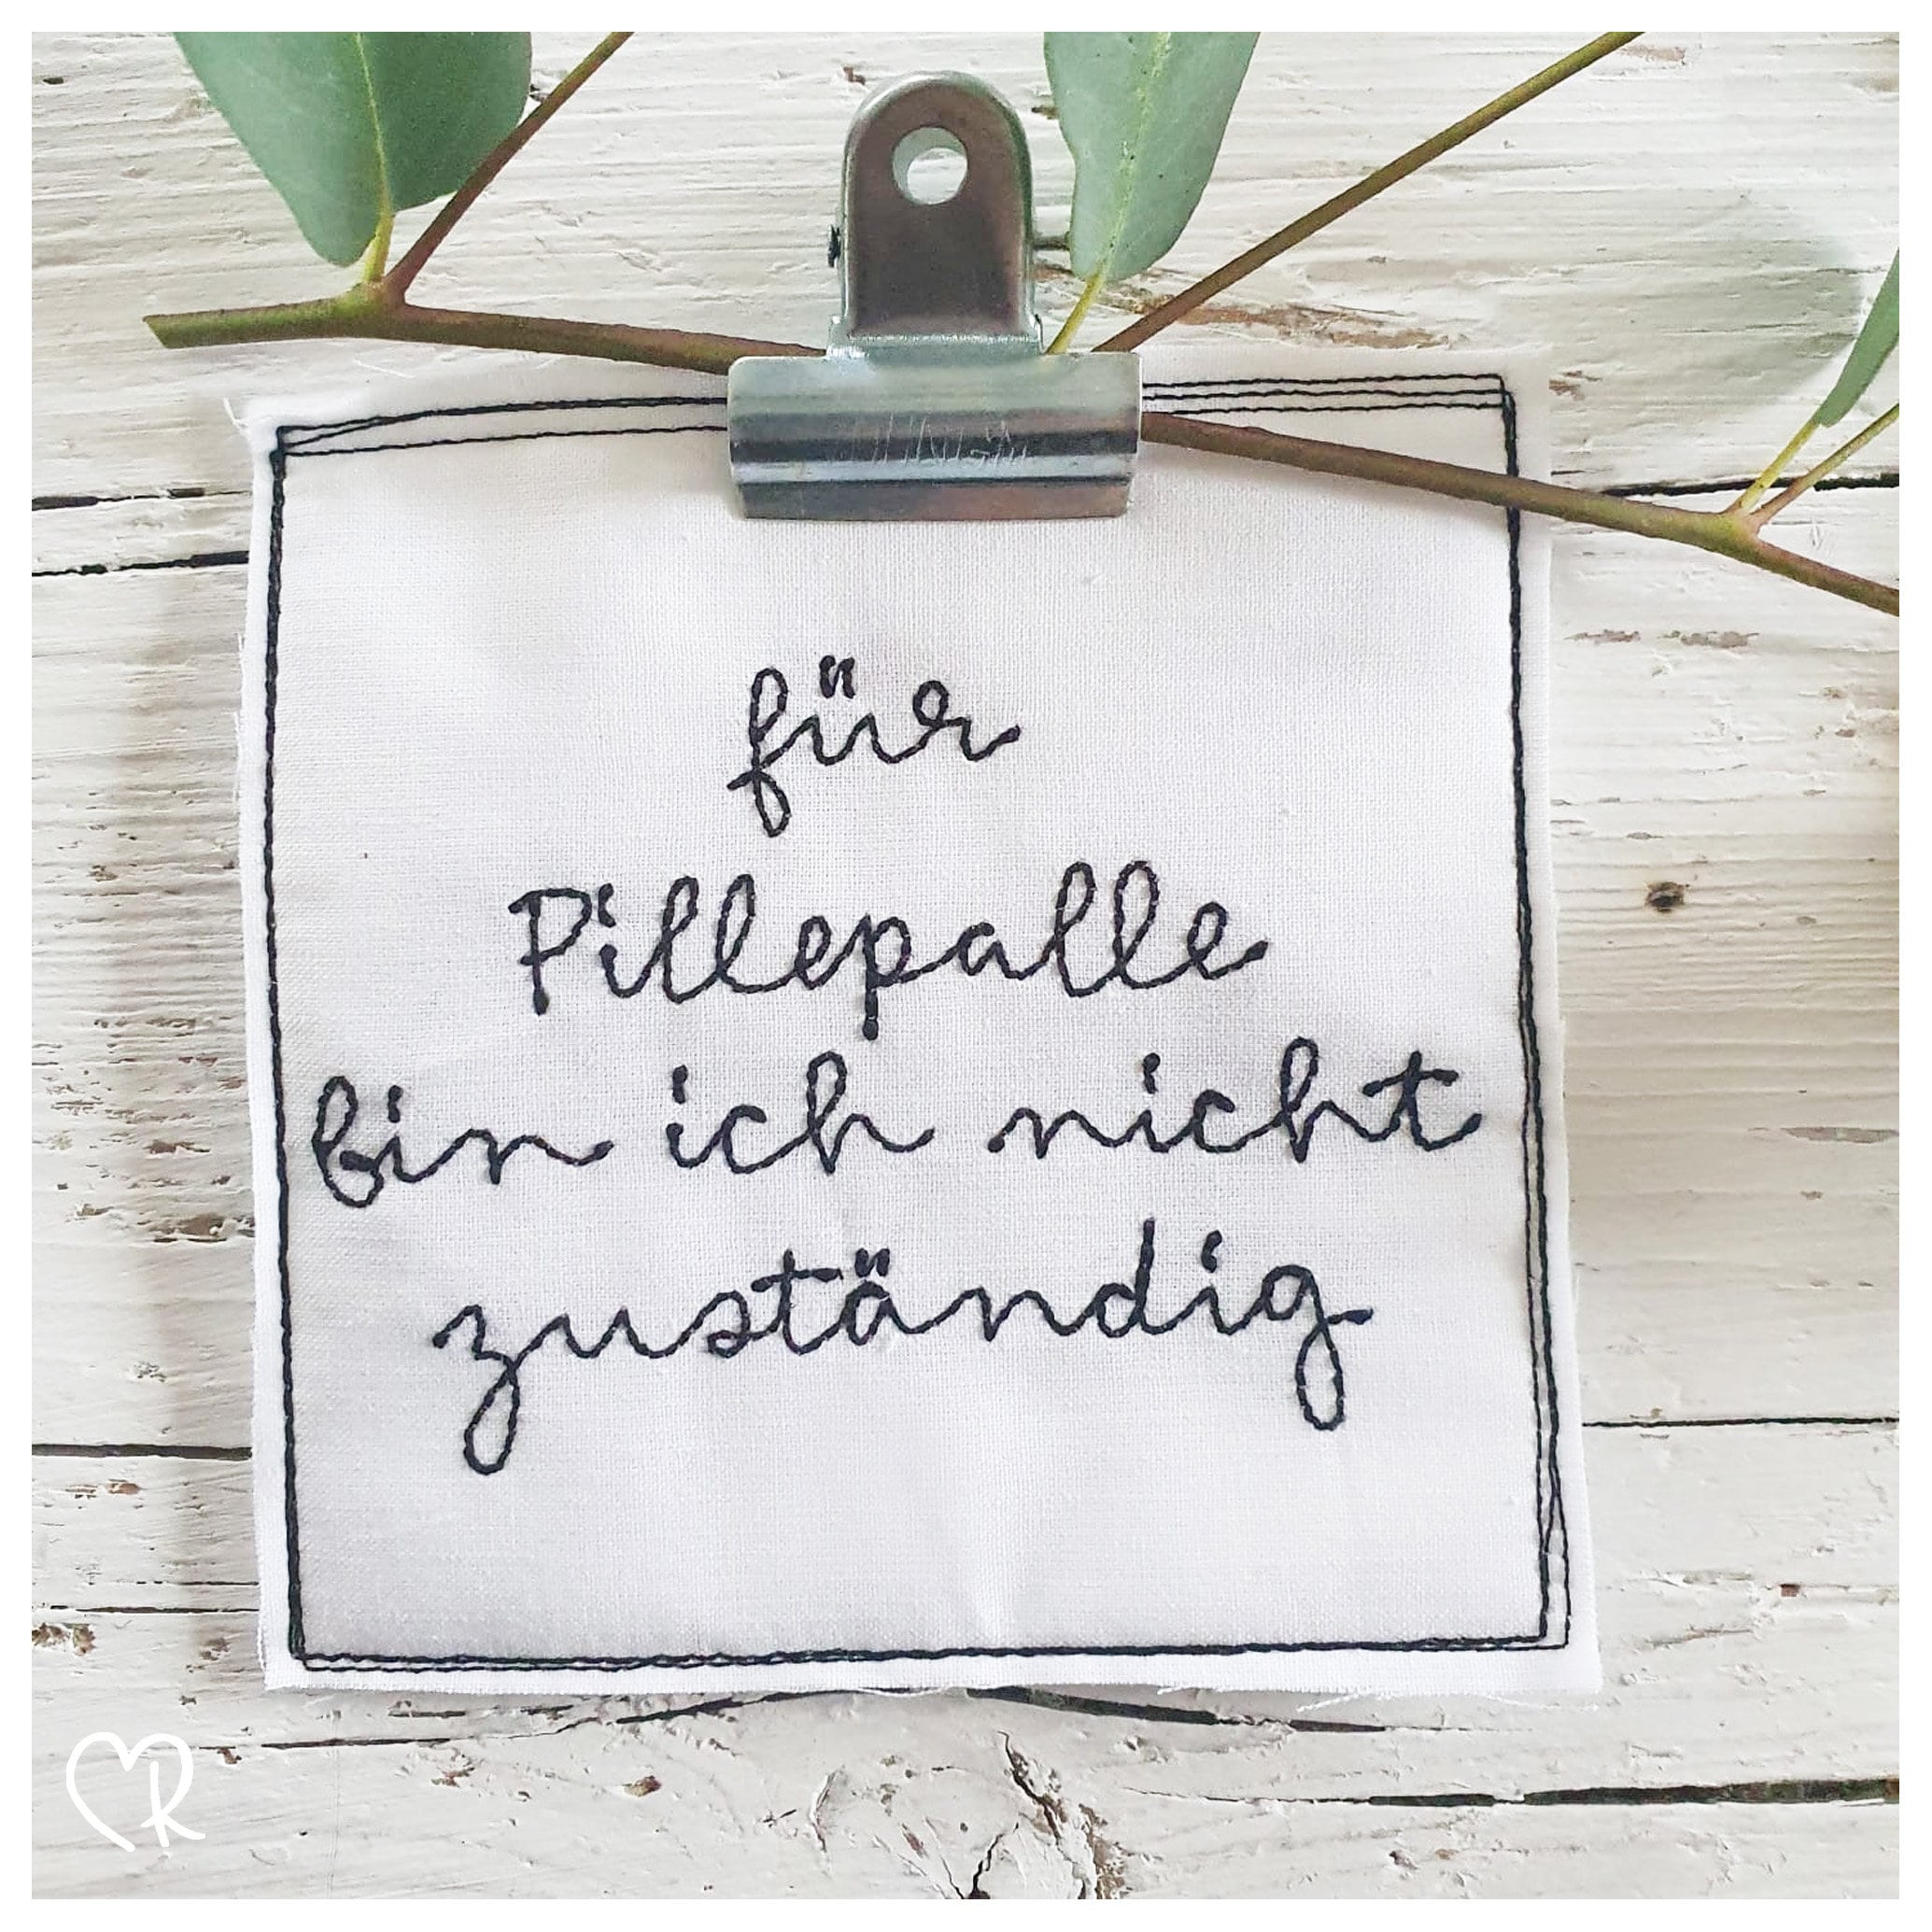 für
Pillepalle
bin ich nicht
zuständig